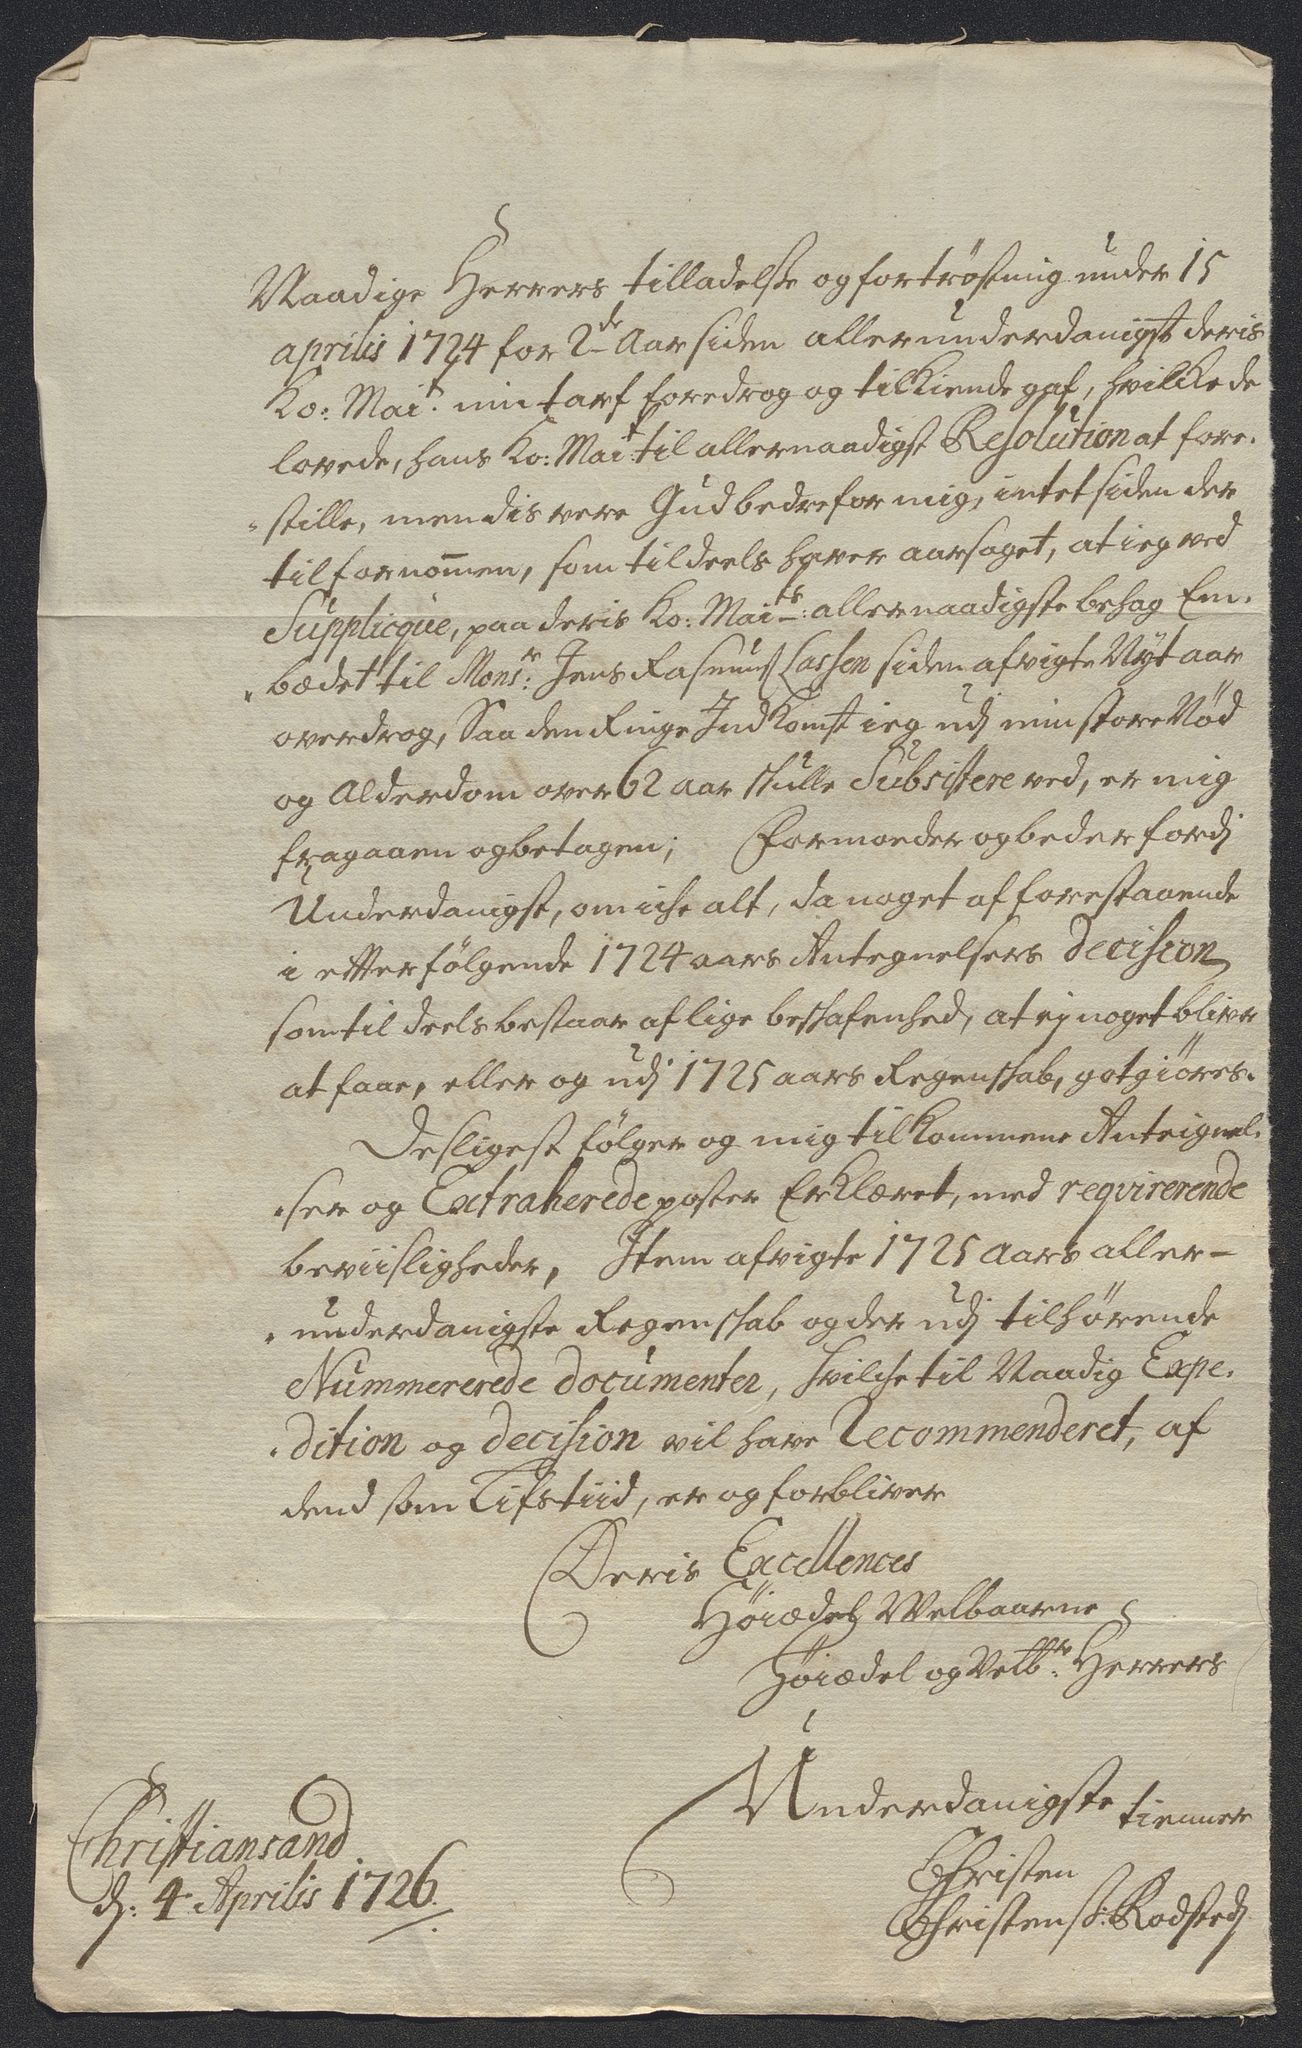 Naadige Herrers tilladelse og fortröstning under 15
aprilis 1724 for 2de Aar siden allerunderdanigst deris
Ko: Mait. min tarf foredrog og tilkiende gaf, hvilke de
lovede, hans Ko: Mait: til allernaadigst Resolution at fore-
"stille, men dis vere Gud bedre for mig, intet siden der
til fornom̄en, som til deels haver aarsaget, at ieg ved
Supplicqve, paa deris Ko: Maits: allernaadigste behag Em-
"bædet til Monsr: Jens Rasmus Lassen siden afvigte Nyt aar
overdrog, Saa den Ringe Indkomst ieg udj min store Nød
og Alderdom over 62 aar skulle Subsistere ved, er mig
fragaaen og betagen; Formoeder og beder fordj
Underdanigst, om iche alt, da noget af forestaaende
i efterfölgende 1724 aars Antegnelsers decision
som til deels bestaar af lige beskafenhed, at ej noget bliver
at faae, eller og udj 1725 aars Regenskab, gotgiöres.
Desligest fölger og mig tilkommene Anteignel-
"ser og Extraherede poster Erklæret, med reqvirerende
beviisligheder, Item afvigte 1725 Aars aller-
"underdanigste Regenskab og der udj tilhörende
Nummererede documenter, hvilche til Naadig Expe-
"dition og decision vil have Recommenderet, af
dend som Lifstiid, er og forbliver
Deris Excellences
Höiædel Welbaarne
Höiædel og Velbr: Herrers
Underdanigste tienner
Christen
Christens: Rodsted
Christiansand
d: 4 Aprilis 1726.